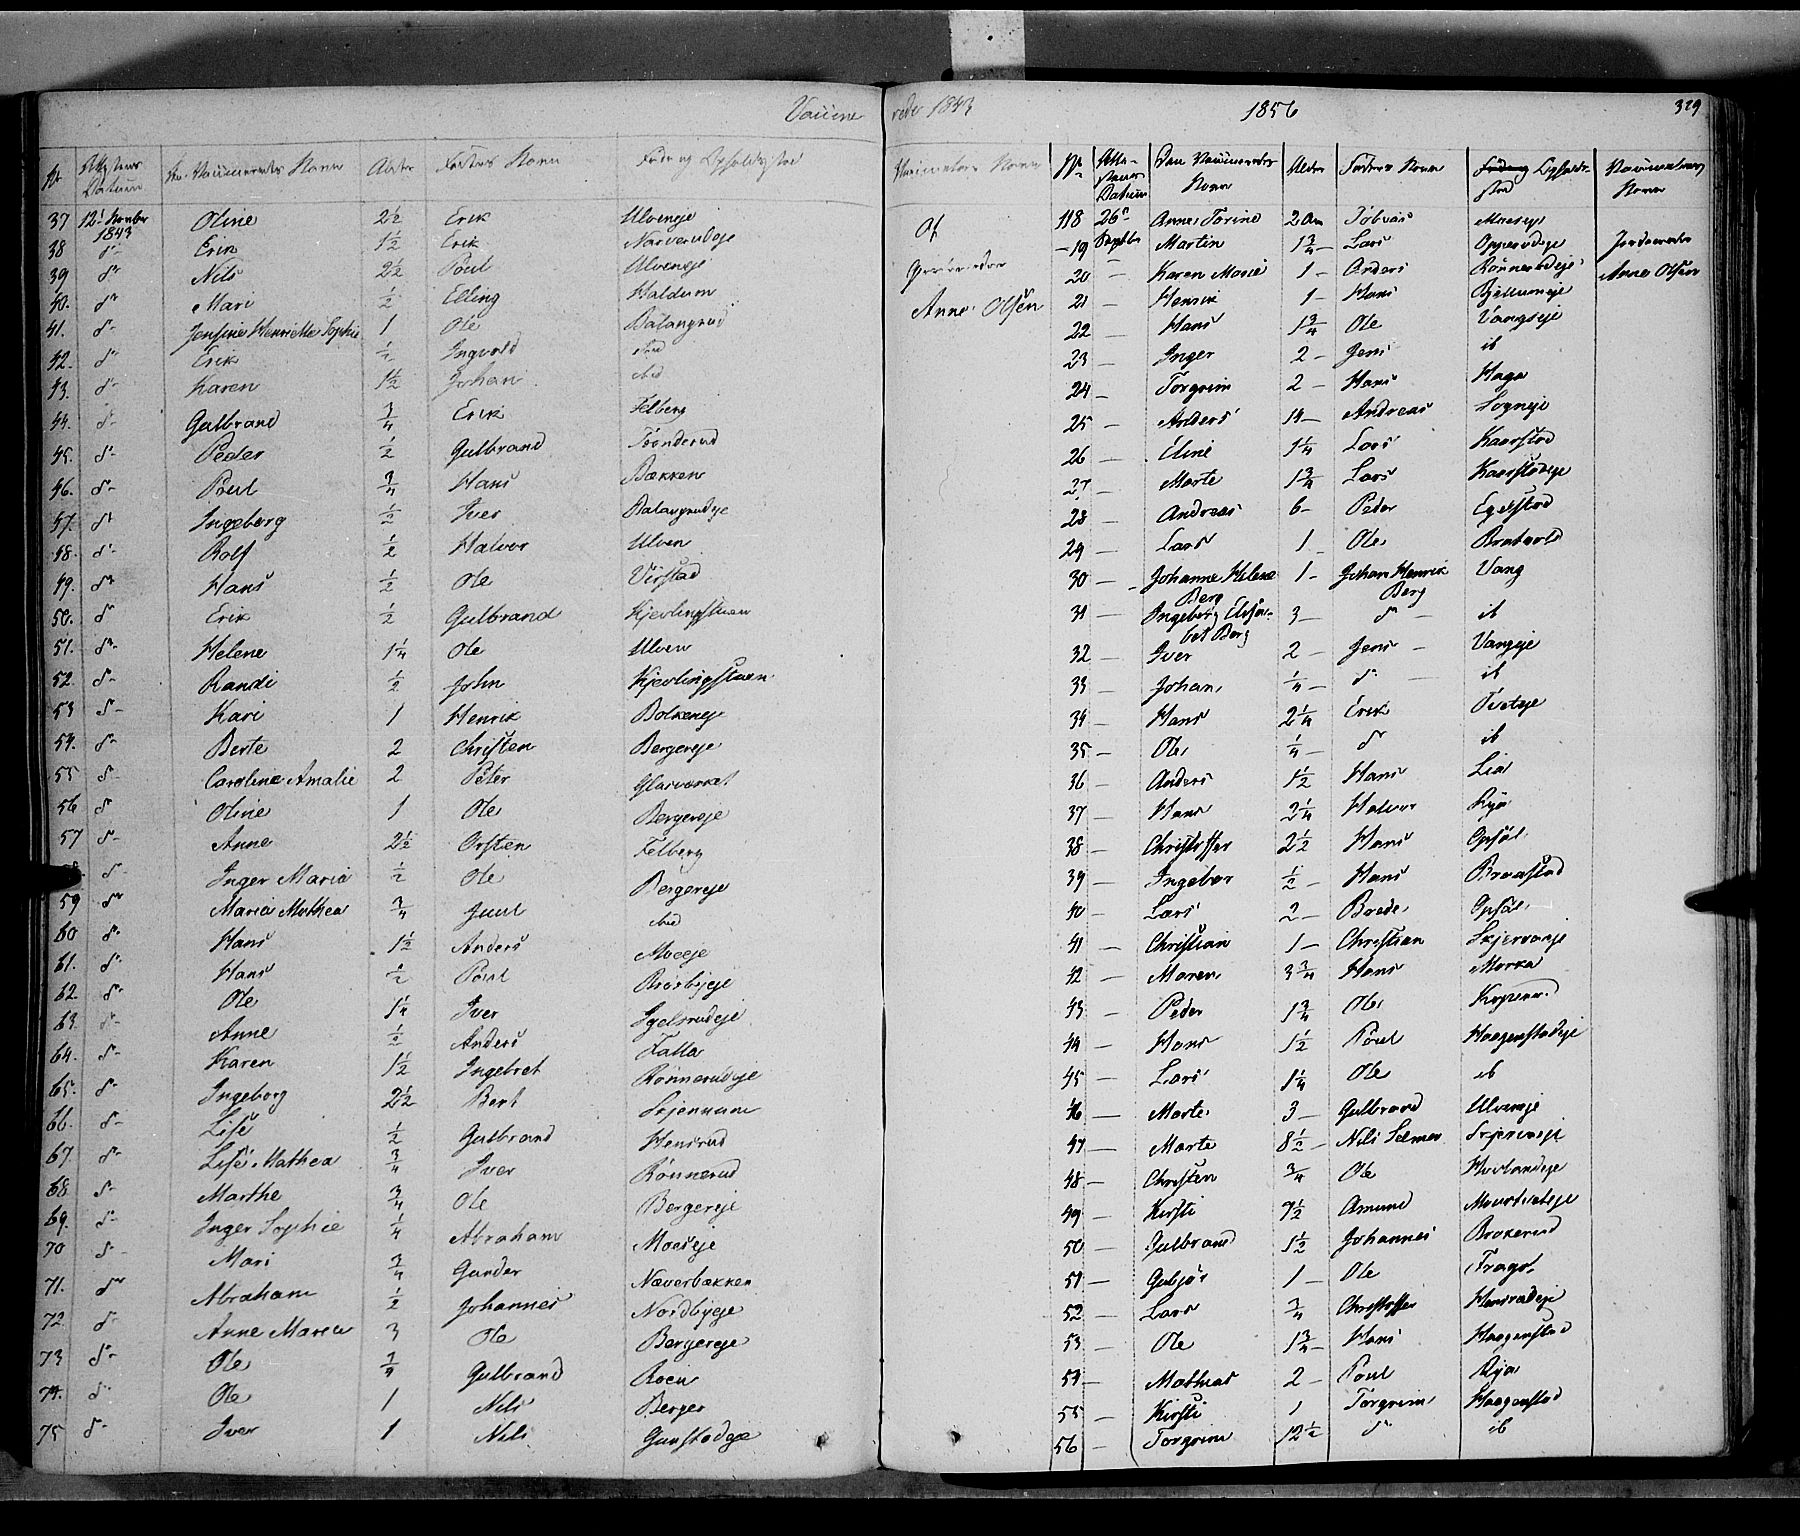 Vaccinerede 1843
1856
329
No Attestens Datum De Vaccineredes Navn Alder Fadrens Navn Føde og Opholdssted Vaccinators Navn
37 12te 1843 Oline 2½ Erik Ulveneje Af
38 do Erik 1½ Erik
39 do Nils 2½ Poul Ulveneje
40. do Mari ½ Elling Haldum Anne Olsen
41. do Jensine Henriette Sophie 1 Ole Balangrud
42. do Erik ½ Ingvold ibid
43. do Karen 1½ Johan ibid
44. do Gulbrand ¾ Erik Felberg
45. do Peder ½ Gulbrand Tønderud
46. do Poul ¾ Hans Bækken
47. do Ingeborg ½ Iver Balangrudeje
48. do Rolf ½ Halvor Ulven
49. do Hans ½ Ole Virstad
50. do Erik ½ Gulbrand Kjevlingstuen
51. do Helene 1¼ Ole Ulven
52. do Randi ½ John Kjevlingstuen
53 do Kari 1 Henrik Bolkeneje
54. do Berte 2 Christen Bergereje
55 do Caroline Amalie 2 Peter Glasværket
56 do Oline 1 Ole Bergereje
57 do Anne 2½ Orsten Felberg
58 do Inger Maria ½ Ole Bergereje
59 do Maria Mathea ¾ Juul ibid
60 do Hans 1½ Anders Moeeje
61. do Hans ½ Poul Braabyeje
62 do Ole 1¼ Iver Igelsrudeje
63. do Anne ½ Anders Falla
64. do Karen 1½ Ingebret Rønnerudeje
65. do Ingeborg 2½ Bert Skjennum
66. do Lise ½ Gulbrand Hensrud
67 do Lise Mathea ¾ Iver Rønnerud
68. do Marthe ¾ Ole Bergereje
69. do Inger Sophie ¼ Abraham Moeseje
70 do Mari ¾ Gunder Næverbækken
71. do Abraham ½ Johannes Nordbyeje
72. do Anne Maria 3 Ole Bergereje
73 do Ole ¾ Gulbrand Roen
74. do Ole 1 Nils Berger
75 do Iver 1 Nils Gunstadeje
No Attestens Datum Den Vaccineredes Navn Alder Fadrens Navn Føde og Opholdssted Vaccinators Navn
118 26de Anne Torine 2 Aar Tobias
19 Septbr Martin 1¾ Lars Opperudeje Jordemoder
20 Karen Marie 1 Anders Rønnerudeje Anne Olsen
21 Henrik 1 Hans Bjellumeje
22 Hans 1¾ Ole Vangseje
23 Inger 2 Jens ib
24 Torgrim 2 Hans Haga
25 Anders Andreas Sogneje
26 Eline 1¼ Lars Kaarstad
27 Marte 1¾ Lars Kaarstadeje
28 Andreas 6 Peder Egelstad
29 Lars 1 Ole
30 Johanne Helene Berg 1 Johan Henrik Berg Vang
31 Ingeborg Elisabet Berg 3 do ib
32 Iver 2 Jens Vangeje
33 Johan ¼ do ib
34 Hans 2¼ Erik Tveteje
35 Ole ¼ do ib
36 Anders 1½ Hans Lia
37 Hans 2¼ Halvor Rya
38 Christoffer 2½ Hans Opsal
39 Ingebor ½ Hans Braastad
40 Lars 2 Brede Opsal
41 Christian 1 Christian Skjervangeje
42 Maren 3¾ Hans Morka
43 Peder 1¾ Ole
44 Hans 1½ Poul Haagenstadeje
45 Lars 1¼ Ole ib
46 Marte 3 Gulbrand Ulveneje
47 Marte 8½ Nils Selmer
48 Christen ¾ Ole Hovlandeje
49 Kirsti 9½ Amund
50 Gulbrand 1½ Johannes Brokerud
51 Gubjør 1 Ole
52 Lars ¾ Christoffer Hensrudeje
53 Ole 1¾ Hans Haagenstad
54 Mathias 2 Poul Rya
55 Kirsti 1 Torgrim Haagenstad
56 Torgrim 12½ do ib